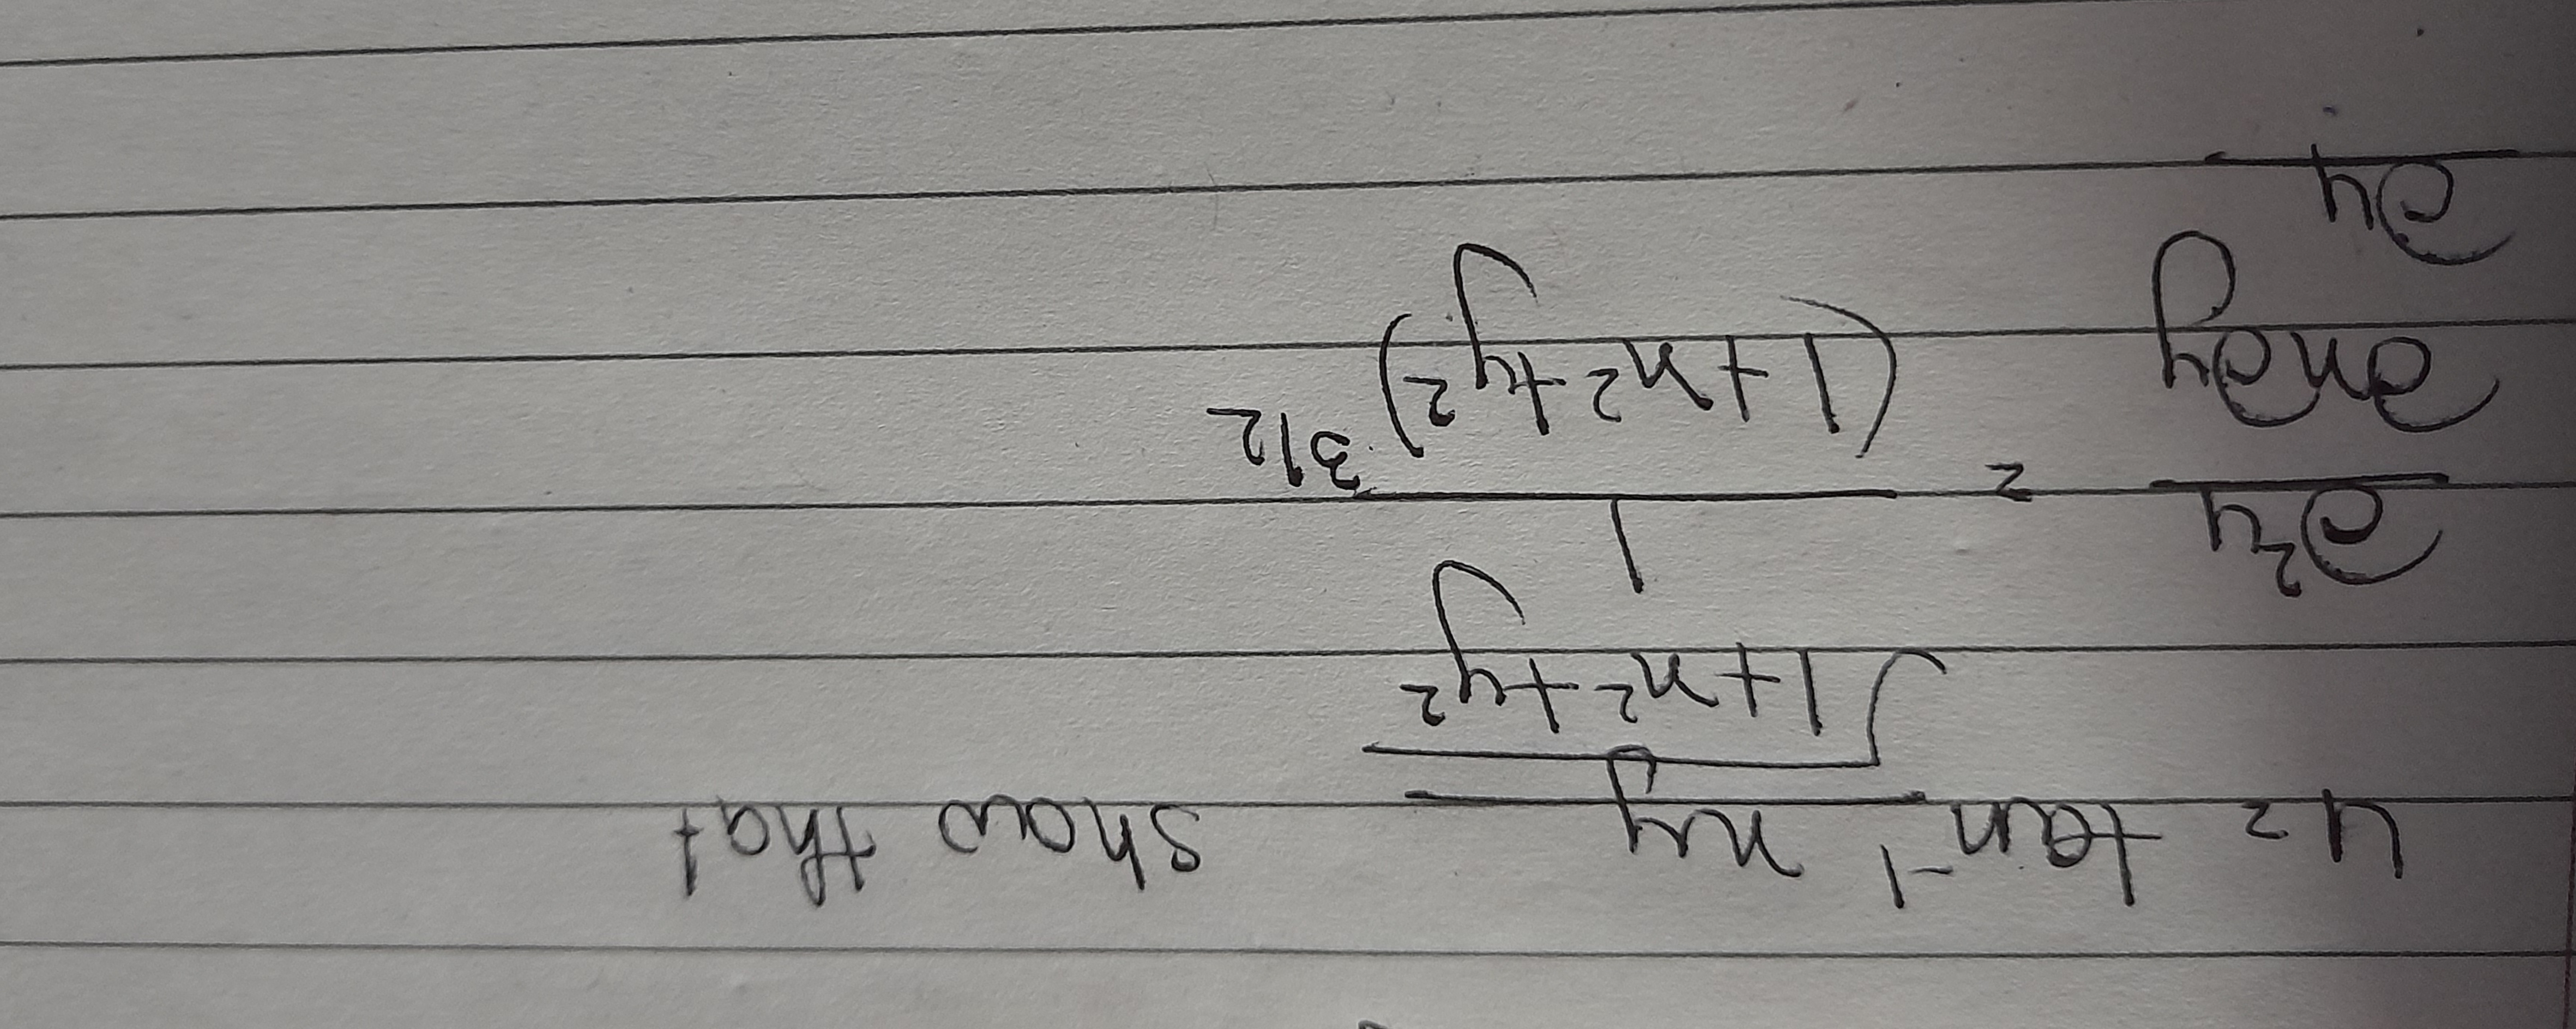 u = tan⁻¹ xy / √1+x²+y² show that
∂²u / ∂x∂y = 1 / (1+x²+y²)^3/2
∂u